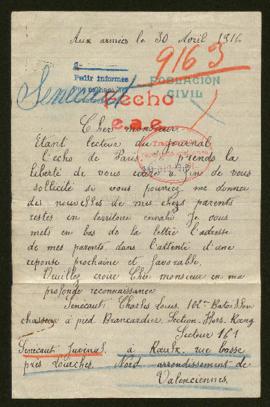 Aux armées le 30 Avril 1916
9163
Pedir informes
POBLACIÓN
CIVIL
Senecaut
Echo
e.a.e.
Cher monsieur
Etant lecteur du journal
l'écho de Paris je prends la
liberté de vous écrire afin de vous
sollicité si vous pourriez me donner
des nouvelles de mes chers parents
restés en territoire envahi Je vous
mets en bas de la lettre l'adresse
de mes parents, dans l'attente d'une
réponse prochaine et favorable.
Veuillez croire Cher monsieur en ma
profonde reconnaissance
Senecaut Charles Louis, 102e Bataillon
chasseur à pied Brancardier, Section Hors. Rang
Secteur 161
Senecaut Juvénal à Rœulx, rue basse
près Lourches Nord arrondissement de
Valenciennes.